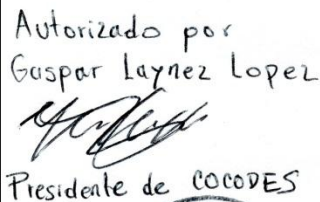 Autorizado por
Gaspar Laynez Lopez
Presidente de COCODES